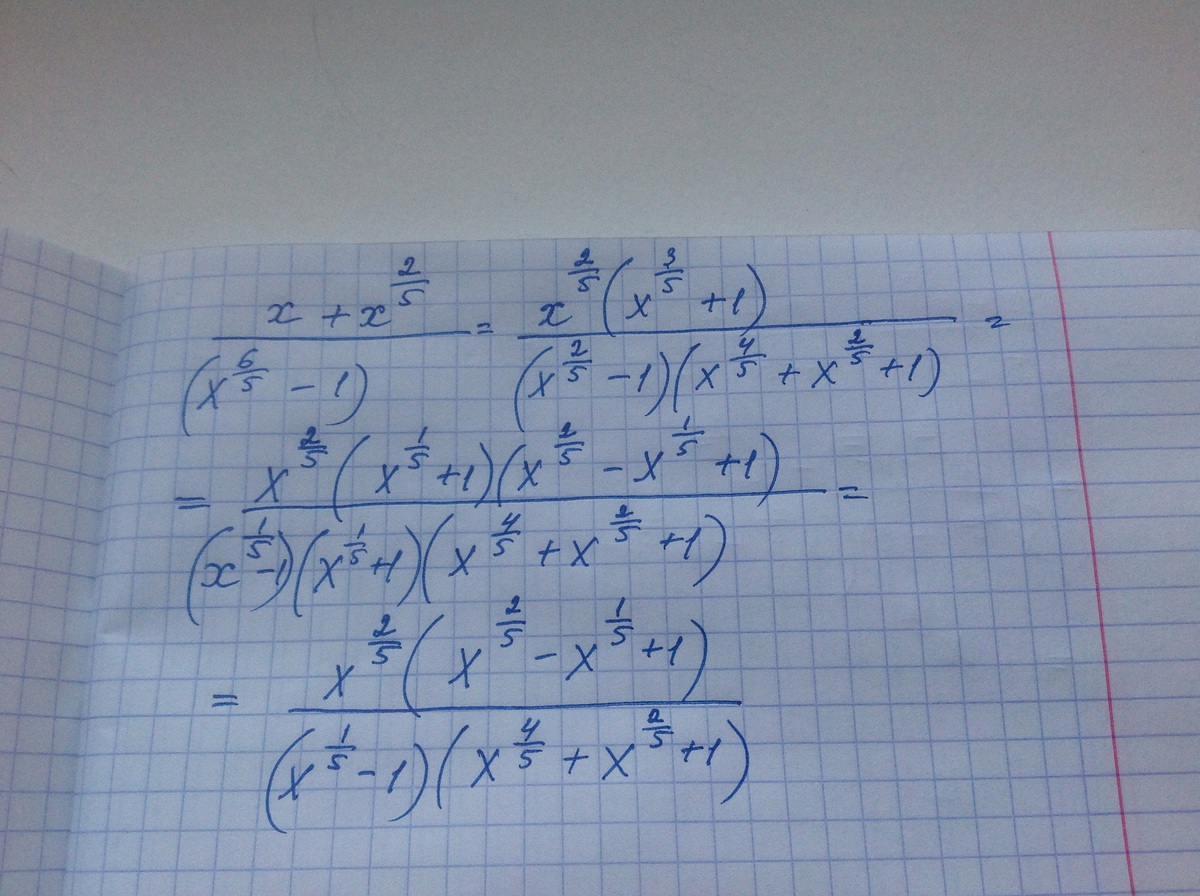 \frac{x + x^{\frac{2}{5}}}{(x^{\frac{6}{5}} - 1)} = \frac{x^{\frac{2}{5}}(x^{\frac{3}{5}} + 1)}{(x^{\frac{2}{5}} - 1)(x^{\frac{4}{5}} + x^{\frac{2}{5}} + 1)} =
= \frac{x^{\frac{2}{5}}(x^{\frac{1}{5}} + 1)(x^{\frac{2}{5}} - x^{\frac{1}{5}} + 1)}{(x^{\frac{1}{5}} - 1)(x^{\frac{1}{5}} + 1)(x^{\frac{4}{5}} + x^{\frac{2}{5}} + 1)} =
= \frac{x^{\frac{2}{5}}(x^{\frac{2}{5}} - x^{\frac{1}{5}} + 1)}{(x^{\frac{1}{5}} - 1)(x^{\frac{4}{5}} + x^{\frac{2}{5}} + 1)}